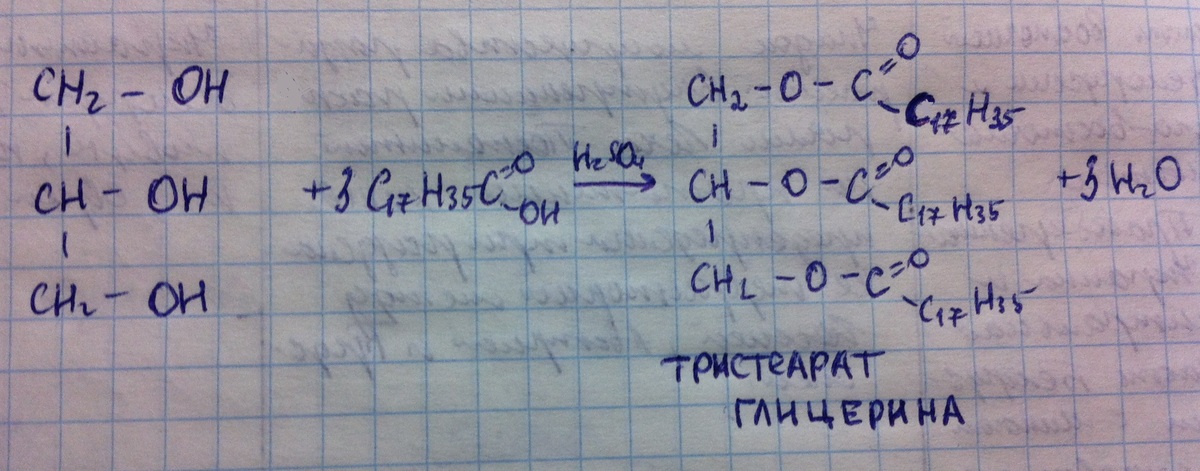 CH2 - OH
CH - OH
CH2 - OH
+3 C17H35C=O-OH
H2SO4
CH2 - O - C=O-C17H35
CH - O - C=O-C17H35
CH2 - O - C=O-C17H35
+3H2O
ТРИСТЕАРАТ
ГЛИЦЕРИНА